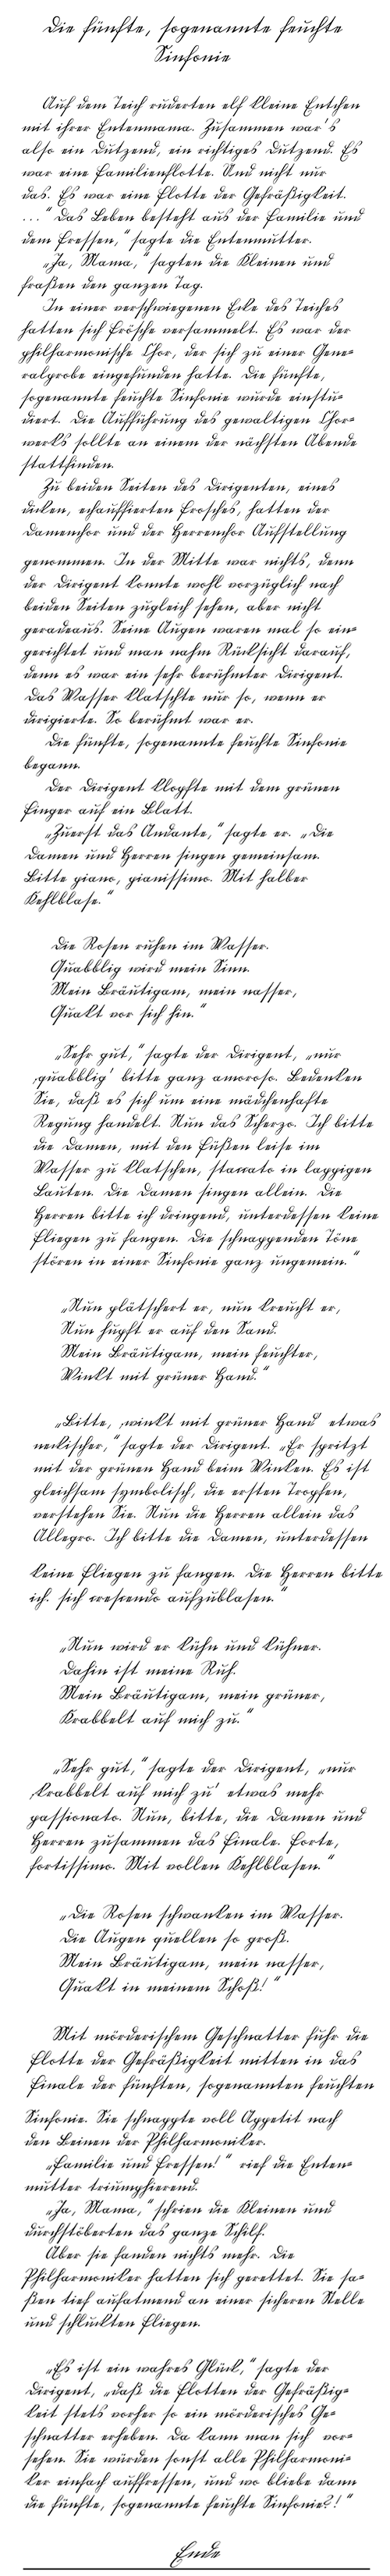 Die fünfte, sogenannte feuchte
Sinfonie
Auf dem Teich ruderten elf kleine Entchen
mit ihrer Entenmama. Zusammen war's
also ein Dutzend, ein richtiges Dutzend. Es
war eine Familienflotte. Und nicht nur
das. Es war eine Flotte der Gefräßigkeit.
..." Das Leben besteht aus der Familie und
dem Fressen," sagte die Entenmutter.
„Ja, Mama," sagten die Kleinen und
fraßen den ganzen Tag.
In einer verschwiegenen Ecke des Teiches
hatten sich Frösche versammelt. Es war der
philharmonische Chor, der sich zu einer Gene=
ralprobe eingefunden hatte. Die fünfte,
sogenannte feuchte Sinfonie wurde einstu=
diert. Die Aufführung des gewaltigen Chor=
werks sollte an einem der nächsten Abende
stattfinden.
Zu beiden Seiten des Dirigenten, eines
dicken, echauffierten Frosches, hatten der
Damenchor und der Herrenchor Aufstellung
genommen. In der Mitte war nichts, denn
der Dirigent konnte wohl vorzüglich nach
beiden Seiten zugleich sehen, aber nicht
geradeaus. Seine Augen waren mal so ein=
gerichtet und man nahm Rücksicht darauf,
denn es war ein sehr berühmter Dirigent.
Das Wasser klatschte nur so, wenn er
dirigierte. So berühmt war er.
Die fünfte, sogenannte feuchte Sinfonie
begann.
Der Dirigent klopfte mit dem grünen
Finger auf ein Blatt.
„Zuerst das Andante," sagte er. „Die
Damen und Herren singen gemeinsam.
Bitte piano, pianissimo. Mit halber
Kehlblase."
Die Rosen ruhen im Wasser.
Quabblig wird mein Sinn.
Mein Bräutigam, mein nasser,
Quakt vor sich hin."
„Sehr gut," sagte der Dirigent, „nur
‚quabblig' bitte ganz amoroso. Bedenken
Sie, daß es sich um eine mädchenhafte
Regung handelt. Nun das Scherzo. Ich bitte
die Damen, mit den Füßen leise im
Wasser zu klatschen, staccato in lappigen
Lauten. Die Damen singen allein. Die
Herren bitte ich dringend, unterdessen keine
Fliegen zu fangen. Die schnappenden Töne
stören in einer Sinfonie ganz ungemein."
„Nun plätschert er, nun kreucht er,
Nun hupft er auf den Sand.
Mein Bräutigam, mein feuchter,
Winkt mit grüner Hand."
„Bitte, ‚winkt mit grüner Hand' etwas
neckischer," sagte der Dirigent. „Er spritzt
mit der grünen Hand beim Winken. Es ist
gleichsam symbolisch, die ersten Tropfen,
verstehen Sie. Nun die Herren allein das
Allegro. Ich bitte die Damen, unterdessen
keine Fliegen zu fangen. Die Herren bitte
ich. sich crescendo aufzublasen."
„Nun wird er kühn und kühner.
Dahin ist meine Ruh.
Mein Bräutigam, mein grüner,
Krabbelt auf mich zu."
„Sehr gut," sagte der Dirigent, „nur
‚krabbelt auf mich zu' etwas mehr
passionato. Nun, bitte, die Damen und
Herren zusammen das Finale. Forte,
fortissimo. Mit vollen Kehlblasen."
„Die Rosen schwanken im Wasser.
Die Augen quellen so groß.
Mein Bräutigam, mein nasser,
Quakt in meinem Schoß!"
Mit mörderischem Geschnatter fuhr die
Flotte der Gefräßigkeit mitten in das
Finale der fünften, sogenannten feuchten
Sinfonie. Sie schnappte voll Appetit nach
den Beinen der Philharmoniker.
„Familie und Fressen!" rief die Enten=
mutter triumphierend.
„Ja, Mama," schrien die Kleinen und
durchstöberten das ganze Schilf.
Aber sie fanden nichts mehr. Die
Philharmoniker hatten sich gerettet. Sie sa=
ßen tief aufatmend an einer sicheren Stelle
und schluckten Fliegen.
„Es ist ein wahres Glück," sagte der
Dirigent, „daß die Flotten der Gefräßig=
keit stets vorher so ein mörderisches Ge=
schnatter erheben. Da kann man sich vor=
sehen. Sie würden sonst alle Philharmoni=
ker einfach auffressen, und wo bliebe dann
die fünfte, sogenannte feuchte Sinfonie?!"
Ende